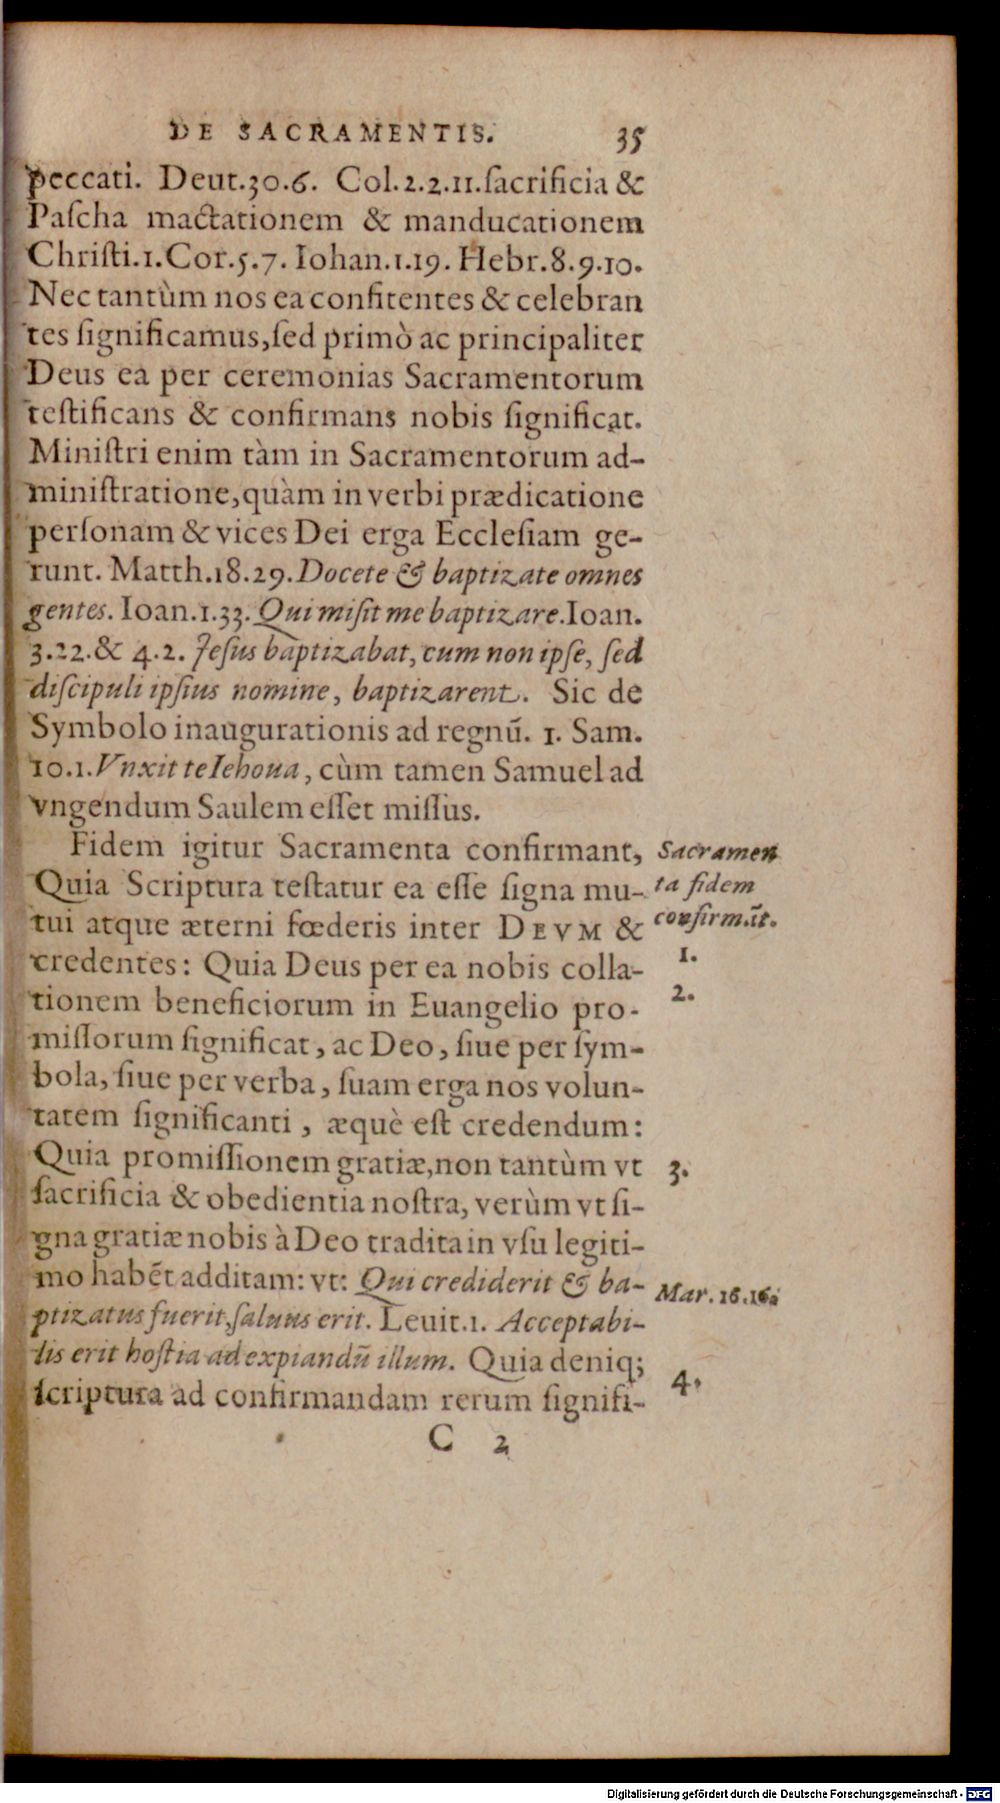 DE SACRAMENTIS. 35
peccati. Deut.30.6. Col.2.2.11.ſacrificia &
Paſcha mactationem & manducationem
Chriſti.1.Cor.5.7. Iohan.1.19. Hebr.8.9.10.
Nec tantùm nos ea confitentes & celebran
tes ſignificamus,ſed primò ac principaliter
Deus ea per ceremonias Sacramentorum
teſtificans & confirmans nobis ſignificat.
Miniſtri enim tàm in Sacramentorum ad-
miniſtratione,quàm in verbi prædicatione
perſonam & vices Dei erga Eccleſiam ge-
runt. Matth.18.29.Docete & baptizate omnes
gentes. Ioan.1.33. Qui miſit me baptizare.Ioan.
3.22.& 4.2. Jeſus baptizabat, cum non ipſe, ſed
diſcipuli ipſius nomine, baptizarent. Sic de
Symbolo inaugurationis ad regnū. 1. Sam.
10.1.Vnxit te Iehoua, cùm tamen Samuel ad
vngendum Saulem eſſet miſſus.
Fidem igitur Sacramenta confirmant, Sacramen
Quia Scriptura teſtatur ea eſſe ſigna mu- ta fidem
tui atque æterni fœderis inter DEVM & confirmāt.
credentes: Quia Deus per ea nobis colla- 1.
tionem beneficiorum in Euangelio pro- 2.
miſſorum ſignificat, ac Deo, ſiue per ſym-
bola, ſiue per verba, ſuam erga nos volun-
tatem ſignificanti, æquè eſt credendum:
Quia promiſſionem gratiæ,non tantùm vt 3.
ſacrificia & obedientia noſtra, verùm vt ſi-
gna gratiæ nobis à Deo tradita in vſu legiti-
mo habēt additam: vt: Qui crediderit & ba- Mar. 16.16.
ptizatus fuerit,ſaluus erit. Leuit.1. Acceptabi-
lis erit hoſtia ad expiandū illum. Quia deniq;
ſcriptura ad confirmandam rerum ſignifi- 4.
C 2
Digitalisierung gefördert durch die Deutsche Forschungsgemeinschaft - DFG